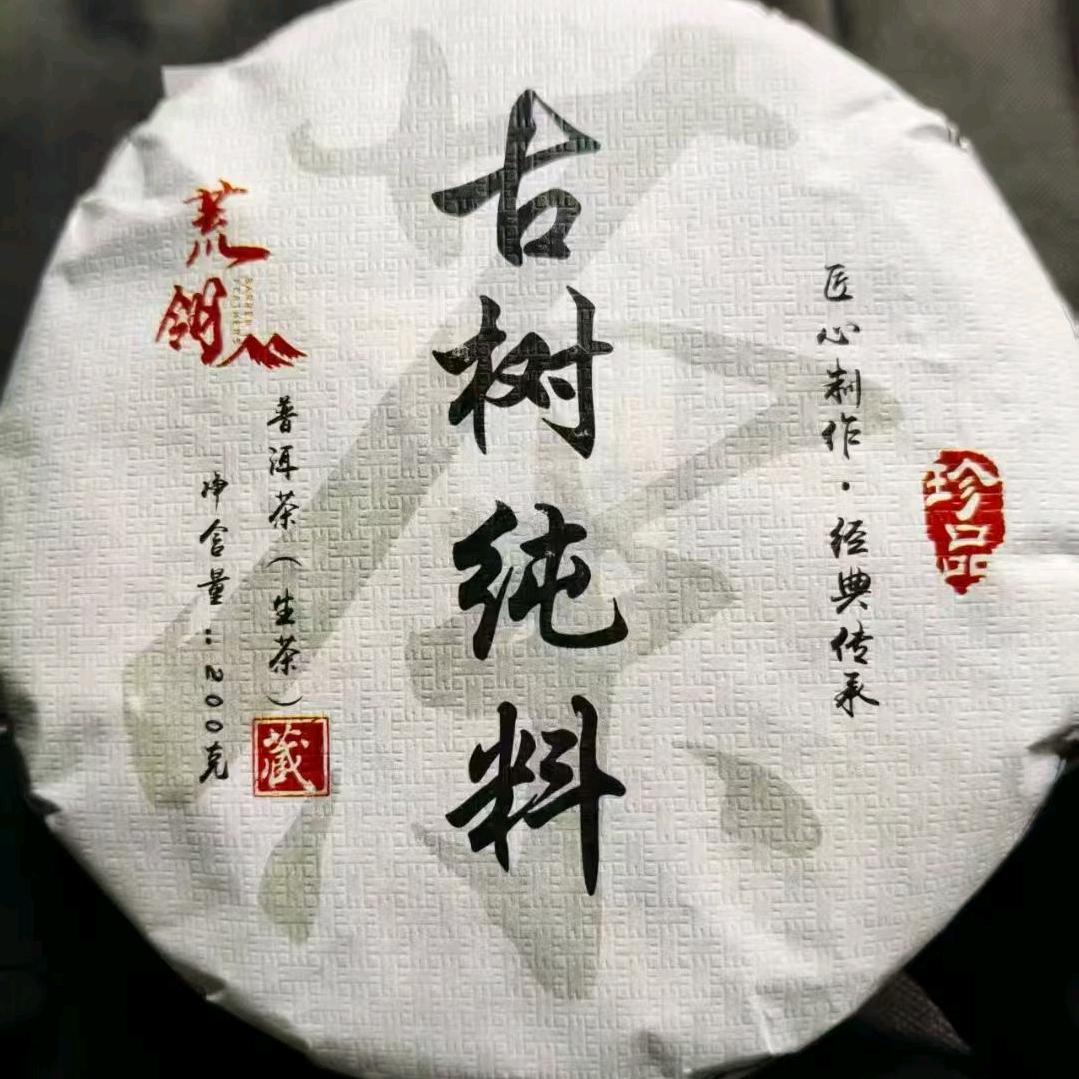 珍品
匠心制作·经典传承
古树纯料
荒
普洱茶(生茶)
藏
净含量:200克